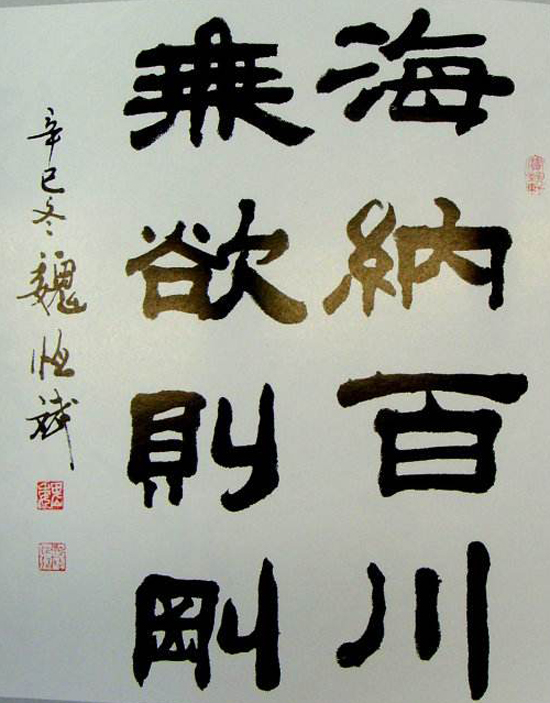 海納百川
無欲則剛
辛巳冬魏恒斌